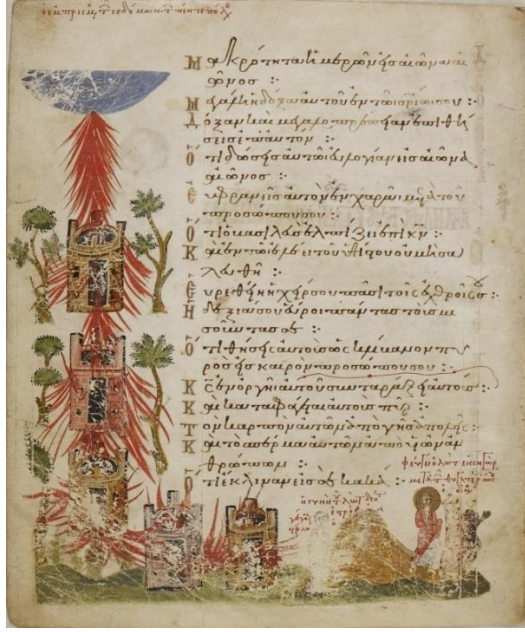 Μακρότητα ἡμερῶν εἰς αἰῶνα αἰ
ῶνος :
Μεγάλη ἡ δόξα αὐτοῦ ἐν τῷ σωτηρίῳ σου :
Δόξαν καὶ μεγαλοπρέπειαν ἐπιθή
σεις ἐπ' αὐτόν :
Ὅτι δώσεις αὐτῷ εὐλογίαν εἰς αἰῶνα
αἰῶνος :
Εὐφρανεῖς αὐτὸν ἐν χαρᾷ μετὰ τοῦ
προσώπου σου :
Ὅτι ὁ βασιλεὺς ἐλπίζει ἐπὶ κν :
Καὶ ἐν τῷ ἐλέει τοῦ ὑψίστου οὐ μὴ σα
λευθῇ :
Εὑρεθείη ἡ χείρ σου πᾶσι τοῖς ἐχθροῖς σου
Ἡ δεξιά σου εὕροι πάντας τοὺς μι
σοῦντας σε :
Ὅτι θήσεις αὐτοὺς ὡς κλίβανον πυ
ρὸς εἰς καιρὸν τοῦ προσώπου σου :
Κς ἐν ὀργῇ αὐτοῦ συνταράξει αὐτούς :
Καὶ καταφάγεται αὐτοὺς πῦρ :
Τὸν καρπὸν αὐτῶν ἀπὸ γῆς ἀπολεῖς :
Καὶ τὸ σπέρμα αὐτῶν ἀπὸ υἱῶν ἀν
θρώπων :
Ὅτι ἔκλιναν εἰς σὲ κακά :